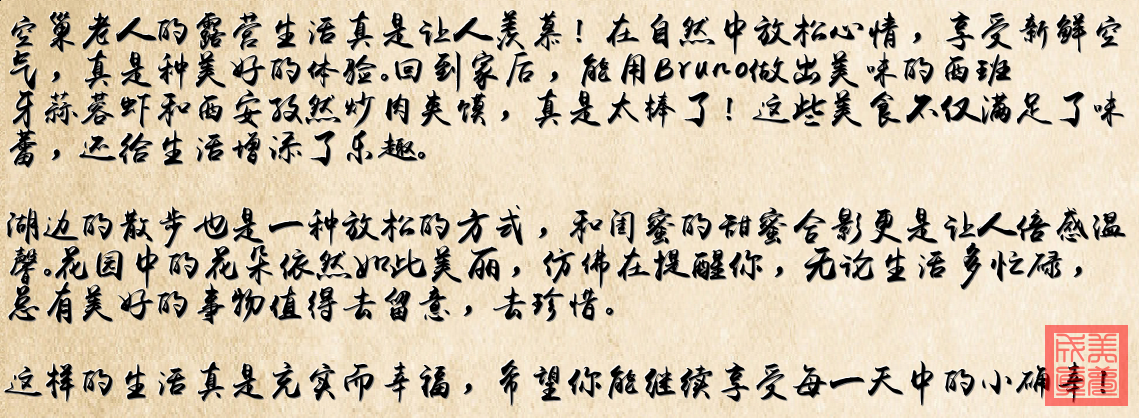 空巢老人的露营生活真是让人羡慕！在自然中放松心情，享受新鲜空
气，真是种美好的体验。回到家后，能用Bruno做出美味的西班
牙蒜蓉虾和西安孜然炒肉夹馍，真是太棒了！这些美食不仅满足了味
蕾，还给生活增添了乐趣。
湖边的散步也是一种放松的方式，和闺蜜的甜蜜合影更是让人倍感温
馨。花园中的花朵依然如此美丽，仿佛在提醒你，无论生活多忙碌，
总有美好的事物值得去留意，去珍惜。
这样的生活真是充实而幸福，希望你能继续享受每一天中的小确幸！